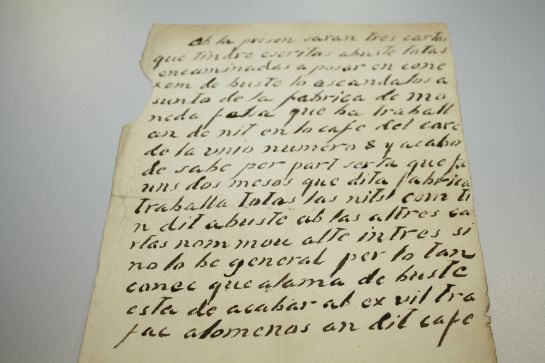 Ab la presen saran tres cartas
que tindre escritas abuste totas
encaminadas a posar en cone
xem de buste lo escandalos a
sunto de la fabrica de mo
neda falsa que ha traball
an de nit en lo cafe del care
de la unio numero 8 y acabo
de sabe per part serta que fa
uns dos mesos que dita fabrica
traballa totas las nits com ti
n dit abuste ab las altres ca
rtas nom mou alte intres si
no lo be general per lo tan
conec que alama de buste
esta de acabar ab ex vil tra
fac alomenos an dit cafe